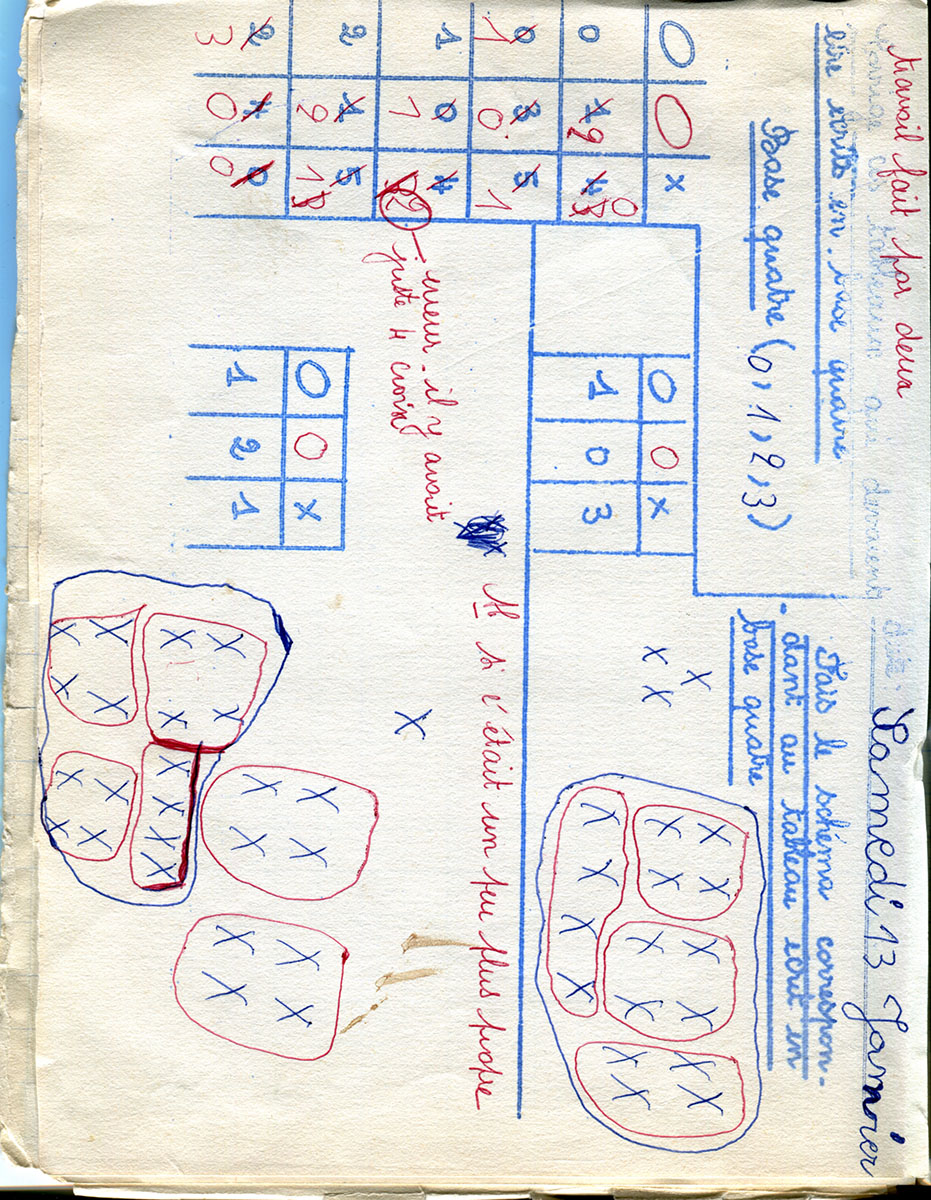 travail fait par deux
Samedi 13 Janvier
Corrige ces tableaux qui devraient
être écrits en base quatre
Fais le schéma correspon-
dant au tableau écrit en
base quatre
Base quatre (0, 1, 2, 3)
O O x
0 1 2 4 0
0 1 3 0 5 1
1 0 1 4 2
2 1 2 5 1
2 3 4 0 0 0
O O x
1 0 3
erreur. il y avait
juste 4 croix
AB si c'était un peu plus propre
O O x
1 2 1